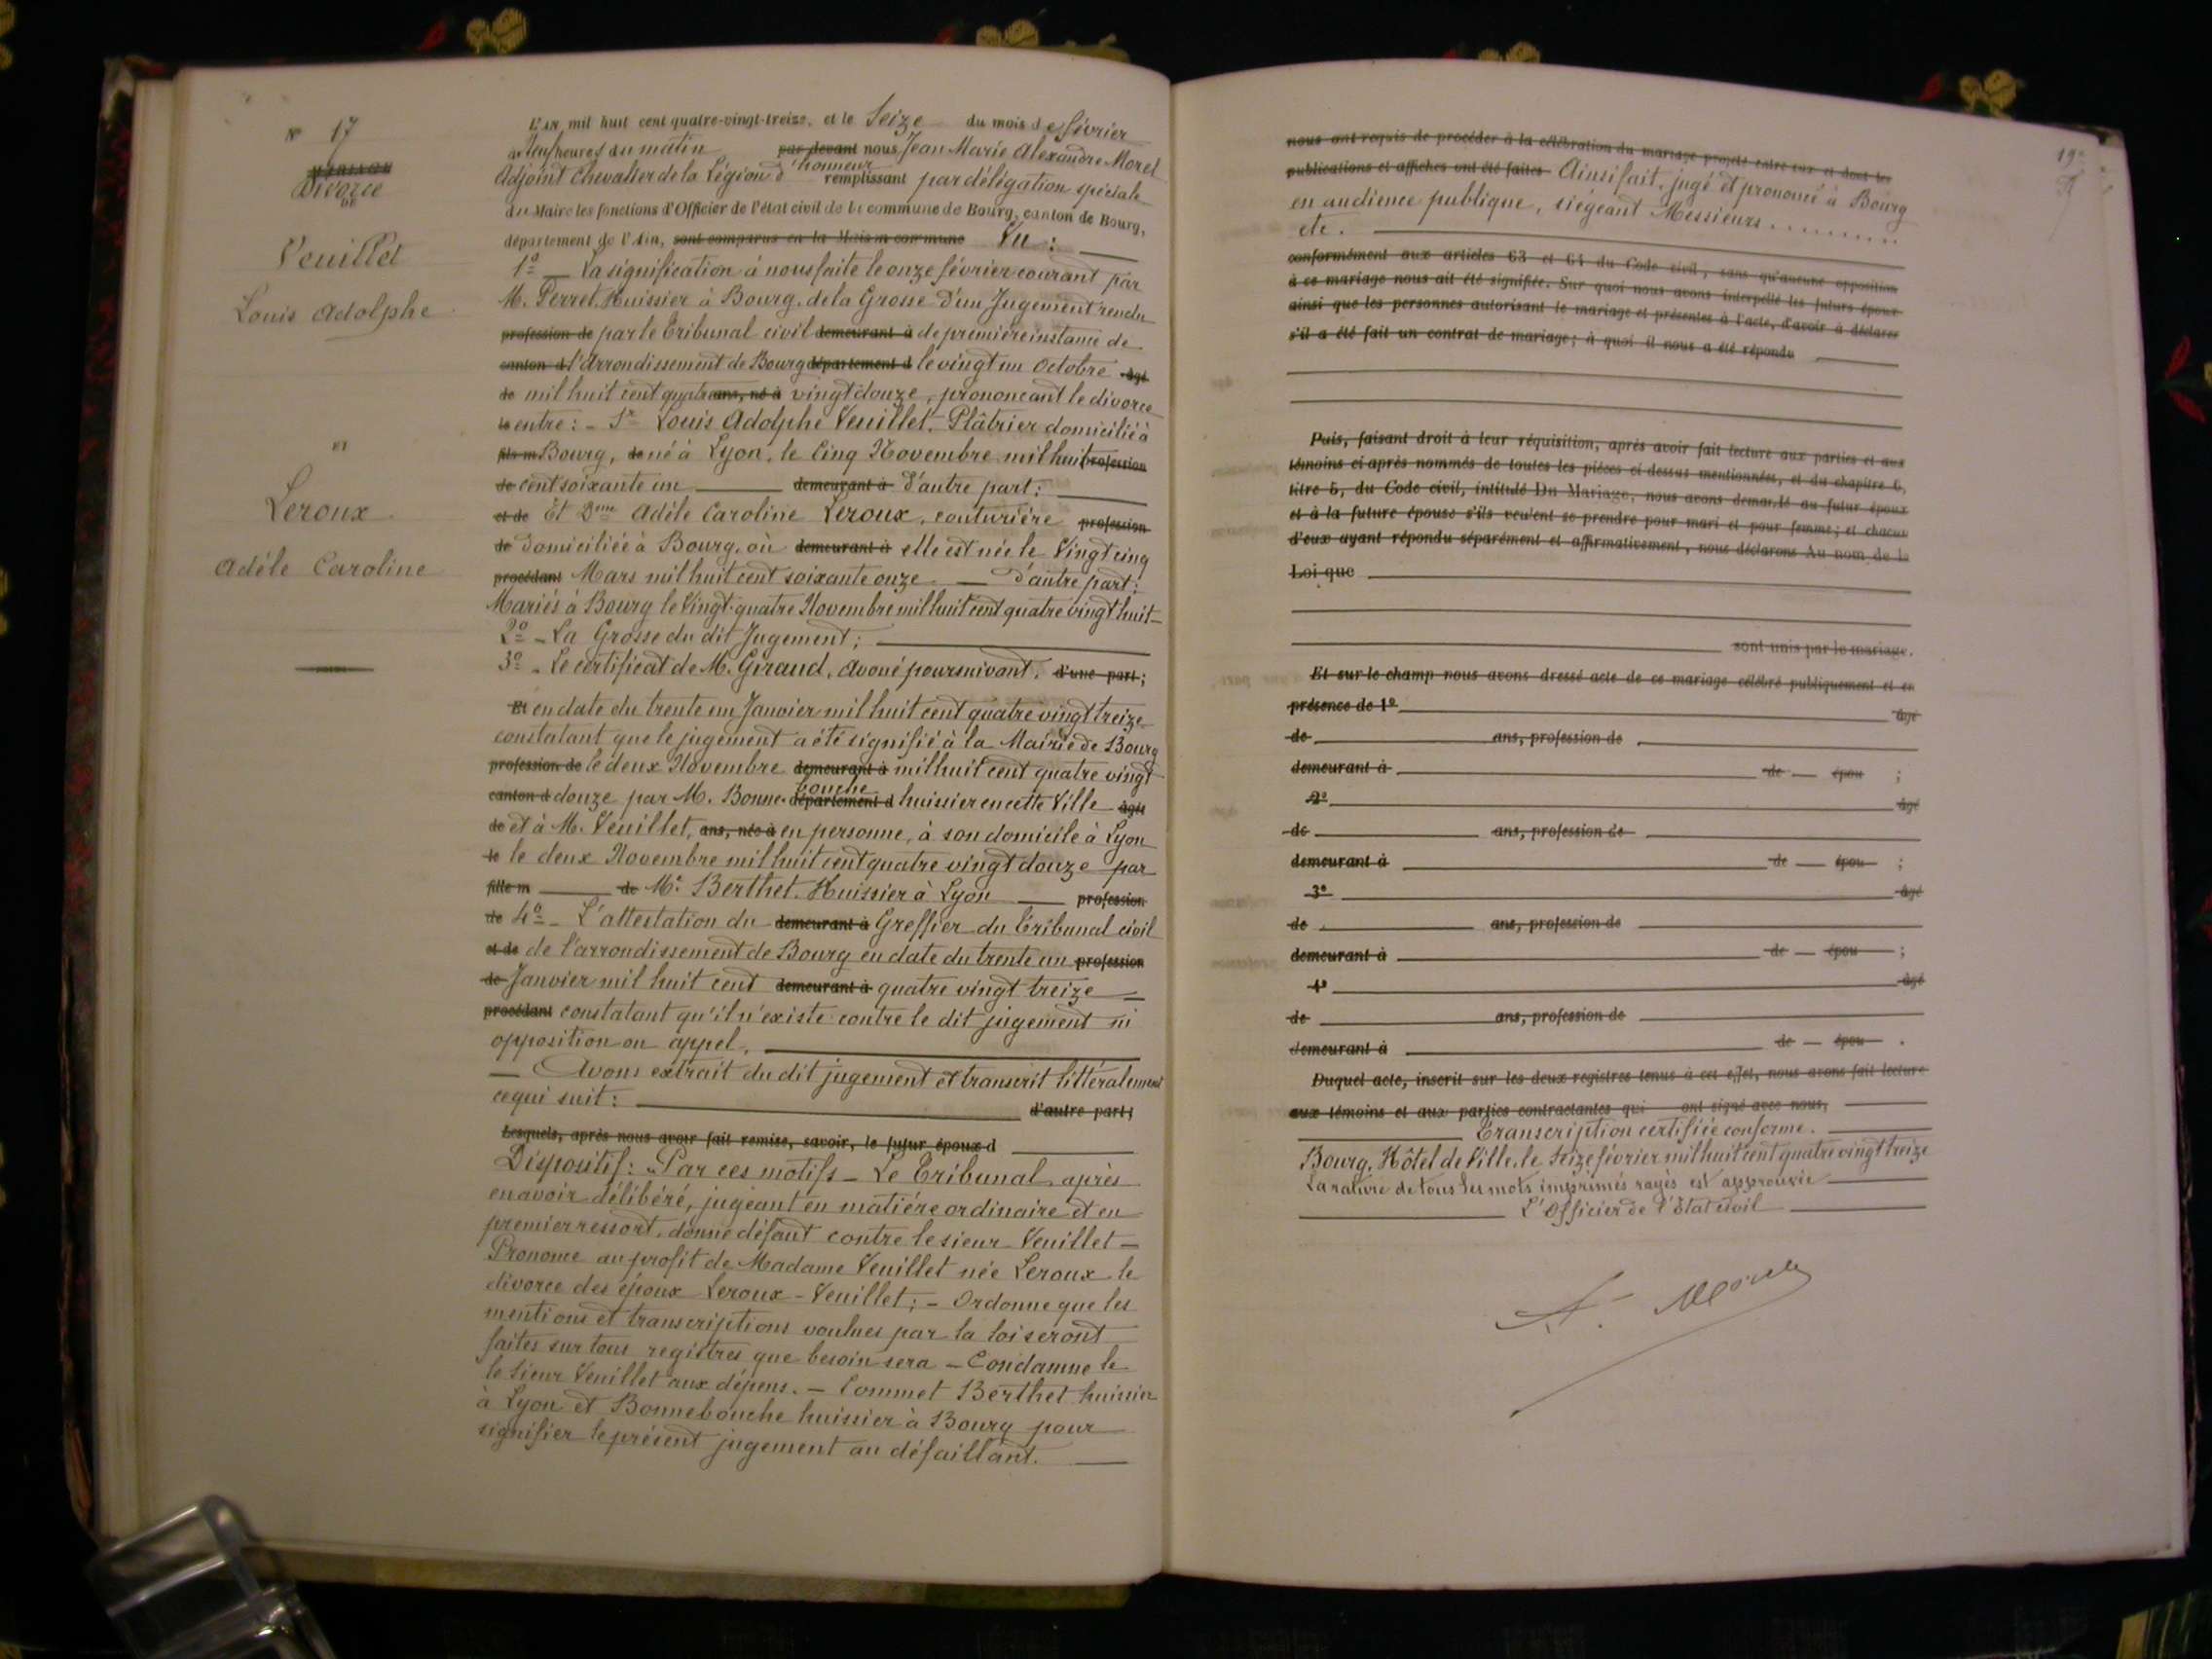 N° 17
MARIAGE
Divorce
DE
Veuillet
Louis Adolphe
ET
Leroux
Adèle Caroline
L'AN mil huit cent quatre-vingt-treize, et le Seize du mois de février
à Neuf heures du matin par devant nous Jean Marie Alexandre Morel
Adjoint Chevalier de la Légion d'honneur remplissant par délégation spéciale
du Maire les fonctions d'Officier de l'état civil de la commune de Bourg, canton de Bourg,
département de l'Ain, sont comparus en la Maison commune Vu :
1° — La signification à nous faite le onze février courant par
M. Perret, Huissier à Bourg, de la Grosse d'un Jugement rendu
profession de par le Tribunal civil demeurant à de première instance de
canton d l'Arrondissement de Bourg département d le vingt un Octobre âgé
de mil huit cent quatre ans, né à vingt douze, prononcant le divorce
le entre : - Sr Louis Adolphe Veuillet, Plâtrier domicilié à
fils m Bourg, de né à Lyon, le Cinq Novembre mil huit profession
de cent soixante un demeurant à d'autre part ;
et de Et Dme Adèle Caroline Leroux, couturière profession
de domiciliée à Bourg, où demeurant à elle est née le Vingt cinq
procédant Mars mil huit cent soixante onze — d'autre part ;
Mariés à Bourg le Vingt-quatre Novembre mil huit cent quatre vingt huit —
2° - La Grosse du dit Jugement ;
3° - Le certificat de M. Giraud, Avoué poursuivant, d'une part ;
Et en date du trente un Janvier mil huit cent quatre vingt treize
constatant que le jugement a été signifié à la Mairie de Bourg
profession de le deux Novembre demeurant à mil huit cent quatre vingt
canton d douze par M. Bonne-bouche département d huissier en cette Ville âgée
de et à M. Veuillet, ans, née à en personne, à son domicile à Lyon
le le deux Novembre mil huit cent quatre vingt douze par
fille m de Me Berthet, Huissier à Lyon profession
de 4° - L'attestation du demeurant à Greffier du Tribunal civil
et de de l'arrondissement de Bourg en date du trente un profession
de Janvier mil huit cent demeurant à quatre vingt treize —
procédant constatant qu'il n'existe contre le dit jugement ni
opposition ou appel.
— Avons extrait du dit jugement et transcrit littéralement
ce qui suit : d'autre part ;
Lesquels, après nous avoir fait remise, savoir, le futur époux d
Dispositif : Par ces motifs - Le Tribunal après
en avoir délibéré, jugeant en matière ordinaire et en
premier ressort, donne défaut contre le sieur Veuillet —
Prononce au profit de Madame Veuillet née Leroux le
divorce des époux Leroux - Veuillet ; - Ordonne que les
mentions et transcriptions voulues par la loi seront
faites sur tous registres que besoin sera - Condamne le
le sieur Veuillet aux dépens. - Commet Berthet huissier
à Lyon et Bonnebouche huissier à Bourg pour
signifier le présent jugement au défaillant. —
19e
nous ont requis de procéder à la célébration du mariage projeté entre eux et dont les
publications et affiches ont été faites Ainsi fait, jugé et prononcé à Bourg
en audience publique, siégeant Messieurs ..........
etc.
conformément aux articles 63 et 64 du Code civil, sans qu'aucune opposition
à ce mariage nous ait été signifiée. Sur quoi nous avons interpellé les futurs époux
ainsi que les personnes autorisant le mariage et présentes à l'acte, d'avoir à déclarer
s'il a été fait un contrat de mariage ; à quoi il nous a été répondu
Puis, faisant droit à leur réquisition, après avoir fait lecture aux parties et aux
témoins ci-après nommés de toutes les pièces ci dessus mentionnées, et du chapitre 6,
titre 5, du Code civil, intitulé Du Mariage, nous avons demandé au futur époux
et à la future épouse s'ils veulent se prendre pour mari et pour femme ; et chacun
d'eux ayant répondu séparément et affirmativement, nous déclarons Au nom de la
Loi que
sont unis par le mariage.
Et sur-le champ nous avons dressé acte de ce mariage célébré publiquement et en
présence de 1° âgé
de ans, profession de
demeurant à de — épou ;
2° âgé
de ans, profession de
demeurant à de — épou ;
3° âgé
de ans, profession de
demeurant à de — épou ;
4° âgé
de ans, profession de
demeurant à de — épou .
Duquel acte, inscrit sur les deux registres tenus à cet effet, nous avons fait lecture
aux témoins et aux parties contractantes qui ont signé avec nous,
Transcription certifiée conforme.
Bourg, Hôtel de Ville, le Seize février mil huit cent quatre vingt treize
La rature de tous les mots imprimés rayés est approuvée
L'Officier de l'État civil
A. Morel